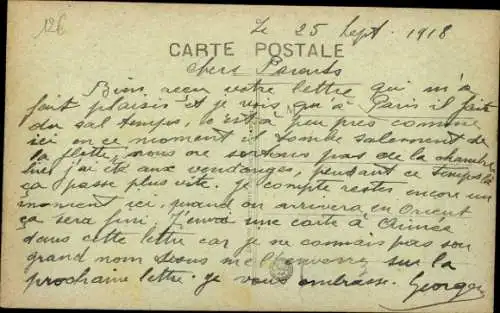 126
Le 25 Sept. 1918
CARTE POSTALE
chers Parents
Bien reçu votre lettre qui m'a
fait plaisir et je vois qu'à Paris il fait
du sal temps, c'est à peu près comme
ici en ce moment il tombe salement de
la flotte, nous ne sortons pas de la chambre
hier j'ai été aux vendanges, pendant ce temps là
ça passe plus vite. je compte rester encore un
moment ici, quand on arrivera en Orient
ça sera fini. J'envoi une carte à Aimée
dans cette lettre car je ne connais pas son
grand nom vous me l'enverrez sur la
prochaine lettre. je vous embrasse. Georges